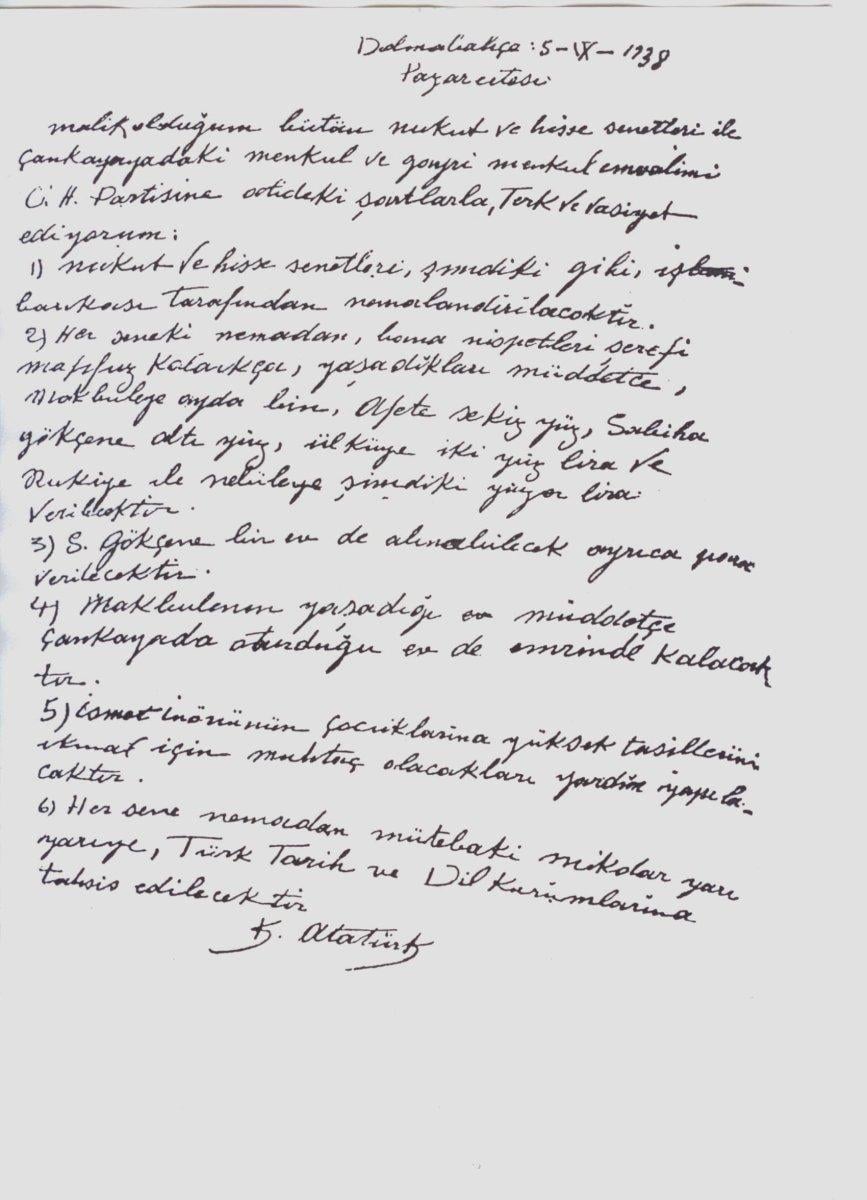 Dolmabahçe: 5-IX-1938
Pazarertesi
malik olduğum bütün nukut ve hisse senetleri ile
Çankayayadaki menkul ve gayri menkul emvalimi
C. H. Partisine atideki şartlarla, Terk ve vasiyet
ediyorum:
1) nukut ve hisse senetleri, şimdiki gibi, iş
bankası tarafından nemalandırılacaktır.
2) Her seneki nemadan, bana nispetleri şerefi
mahfuz Kaldıkça, yaşadıkları müddetce,
Makbuleye ayda bin, Afete sekiz yüz, Sabiha
gökçene altı yüz, ülküye iki yüz lira ve
Rukiye ile nebileye şimdiki yüzer lira
verilecektir.
3) S. Gökçene bir ev de alınabilecek ayrıca para
verilecektir.
4) Makbulenin yaşadığı ev müddetçe
Çankayada oturduğu ev de emrinde Kalacak
tır.
5) ismet inönünün çocuklarına yüksek tasillerini
ikmal için muhtaç olacakları yardım yapıla-
caktır.
6) Her sene nemadan mütebaki mikdar yarı
yarıye, Türk Tarih ve Dil Kurumlarına
tahsis edilecektir
K. Atatürk